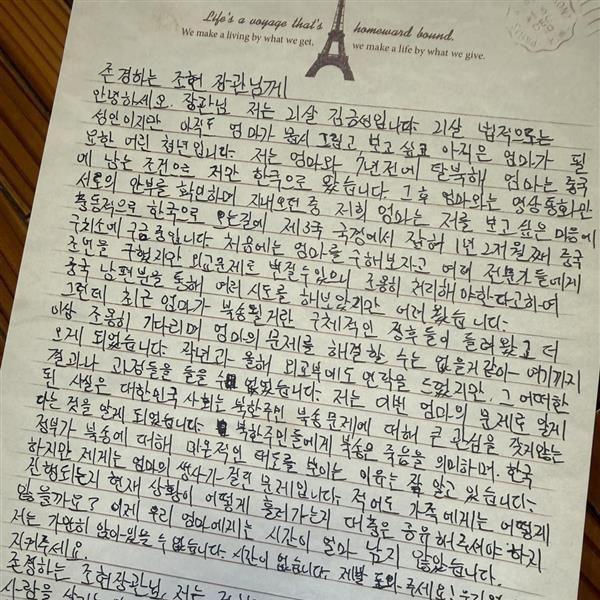 Life's a voyage that's homeward bound.
We make a living by what we get, we make a life by what we give.
존경하는 조현 장관님께
안녕하세요. 장관님 저는 21살 김금성입니다. 21살 법적으로는
성인이지만 아직도 엄마가 몹시 그립고 보고 싶고 아직은 엄마가 필
요한 어린 청년입니다. 저는 엄마와 7년전에 탈북해 엄마는 중국
에 남는 조건으로 저만 한국으로 왔습니다. 그 후 엄마와는 영상통화만
서로의 안부를 확인하며 지내오던 중 저희 엄마는 저를 보고 싶은 마음에
충동적으로 한국으로 오는길에 제3국 국경에서 잡혀 1년 2개월째 중국
구치소에 구금중입니다. 처음에는 엄마를 구해보자고 여러 전문가들에게
조언을 구했지만 외교문제로 번질수있으니 조용히 처리해야한다고하여
중국 남편분을 통해 여러 시도를 해보았지만 어려웠습니다.
그런데 최근 엄마가 북송될거란 구체적인 징후들이 들려왔고 더
이상 조용히 기다리며 엄마의 문제를 해결할 수는 없을거같아 여기까지
오게 되었습니다. 작년과 올해 외교부에도 연락을 드렸지만, 그 어떠한
결과나 과정들을 들을 수 없었습니다. 저는 이번 엄마의 문제로 알게
된 사실은 대한민국 사회는 북한주민 북송문제에 대해 큰 관심을 갖지않는
다는 것을 알게 되었습니다. 북한주민들에게 북송은 죽음을 의미하며, 한국
정부가 북송에 대해 미온적인 태도를 보이는 이유는 잘 알고 있습니다.
하지만 제게는 엄마의 생사가 걸린 문제입니다. 적어도 가족에게는 어떻게
진행되는지 현재 상황이 어떻게 흘러가는지 대충은 공유해주셔야 하지
않을까요? 이제 우리 엄마에게는 시간이 얼마 남지 않았습니다.
저는 가만히 앉아있을 수 없습니다. 시간이 없습니다. 제발 도와주세요!
지켜주세요.
존경하는 조현장관님, 저는